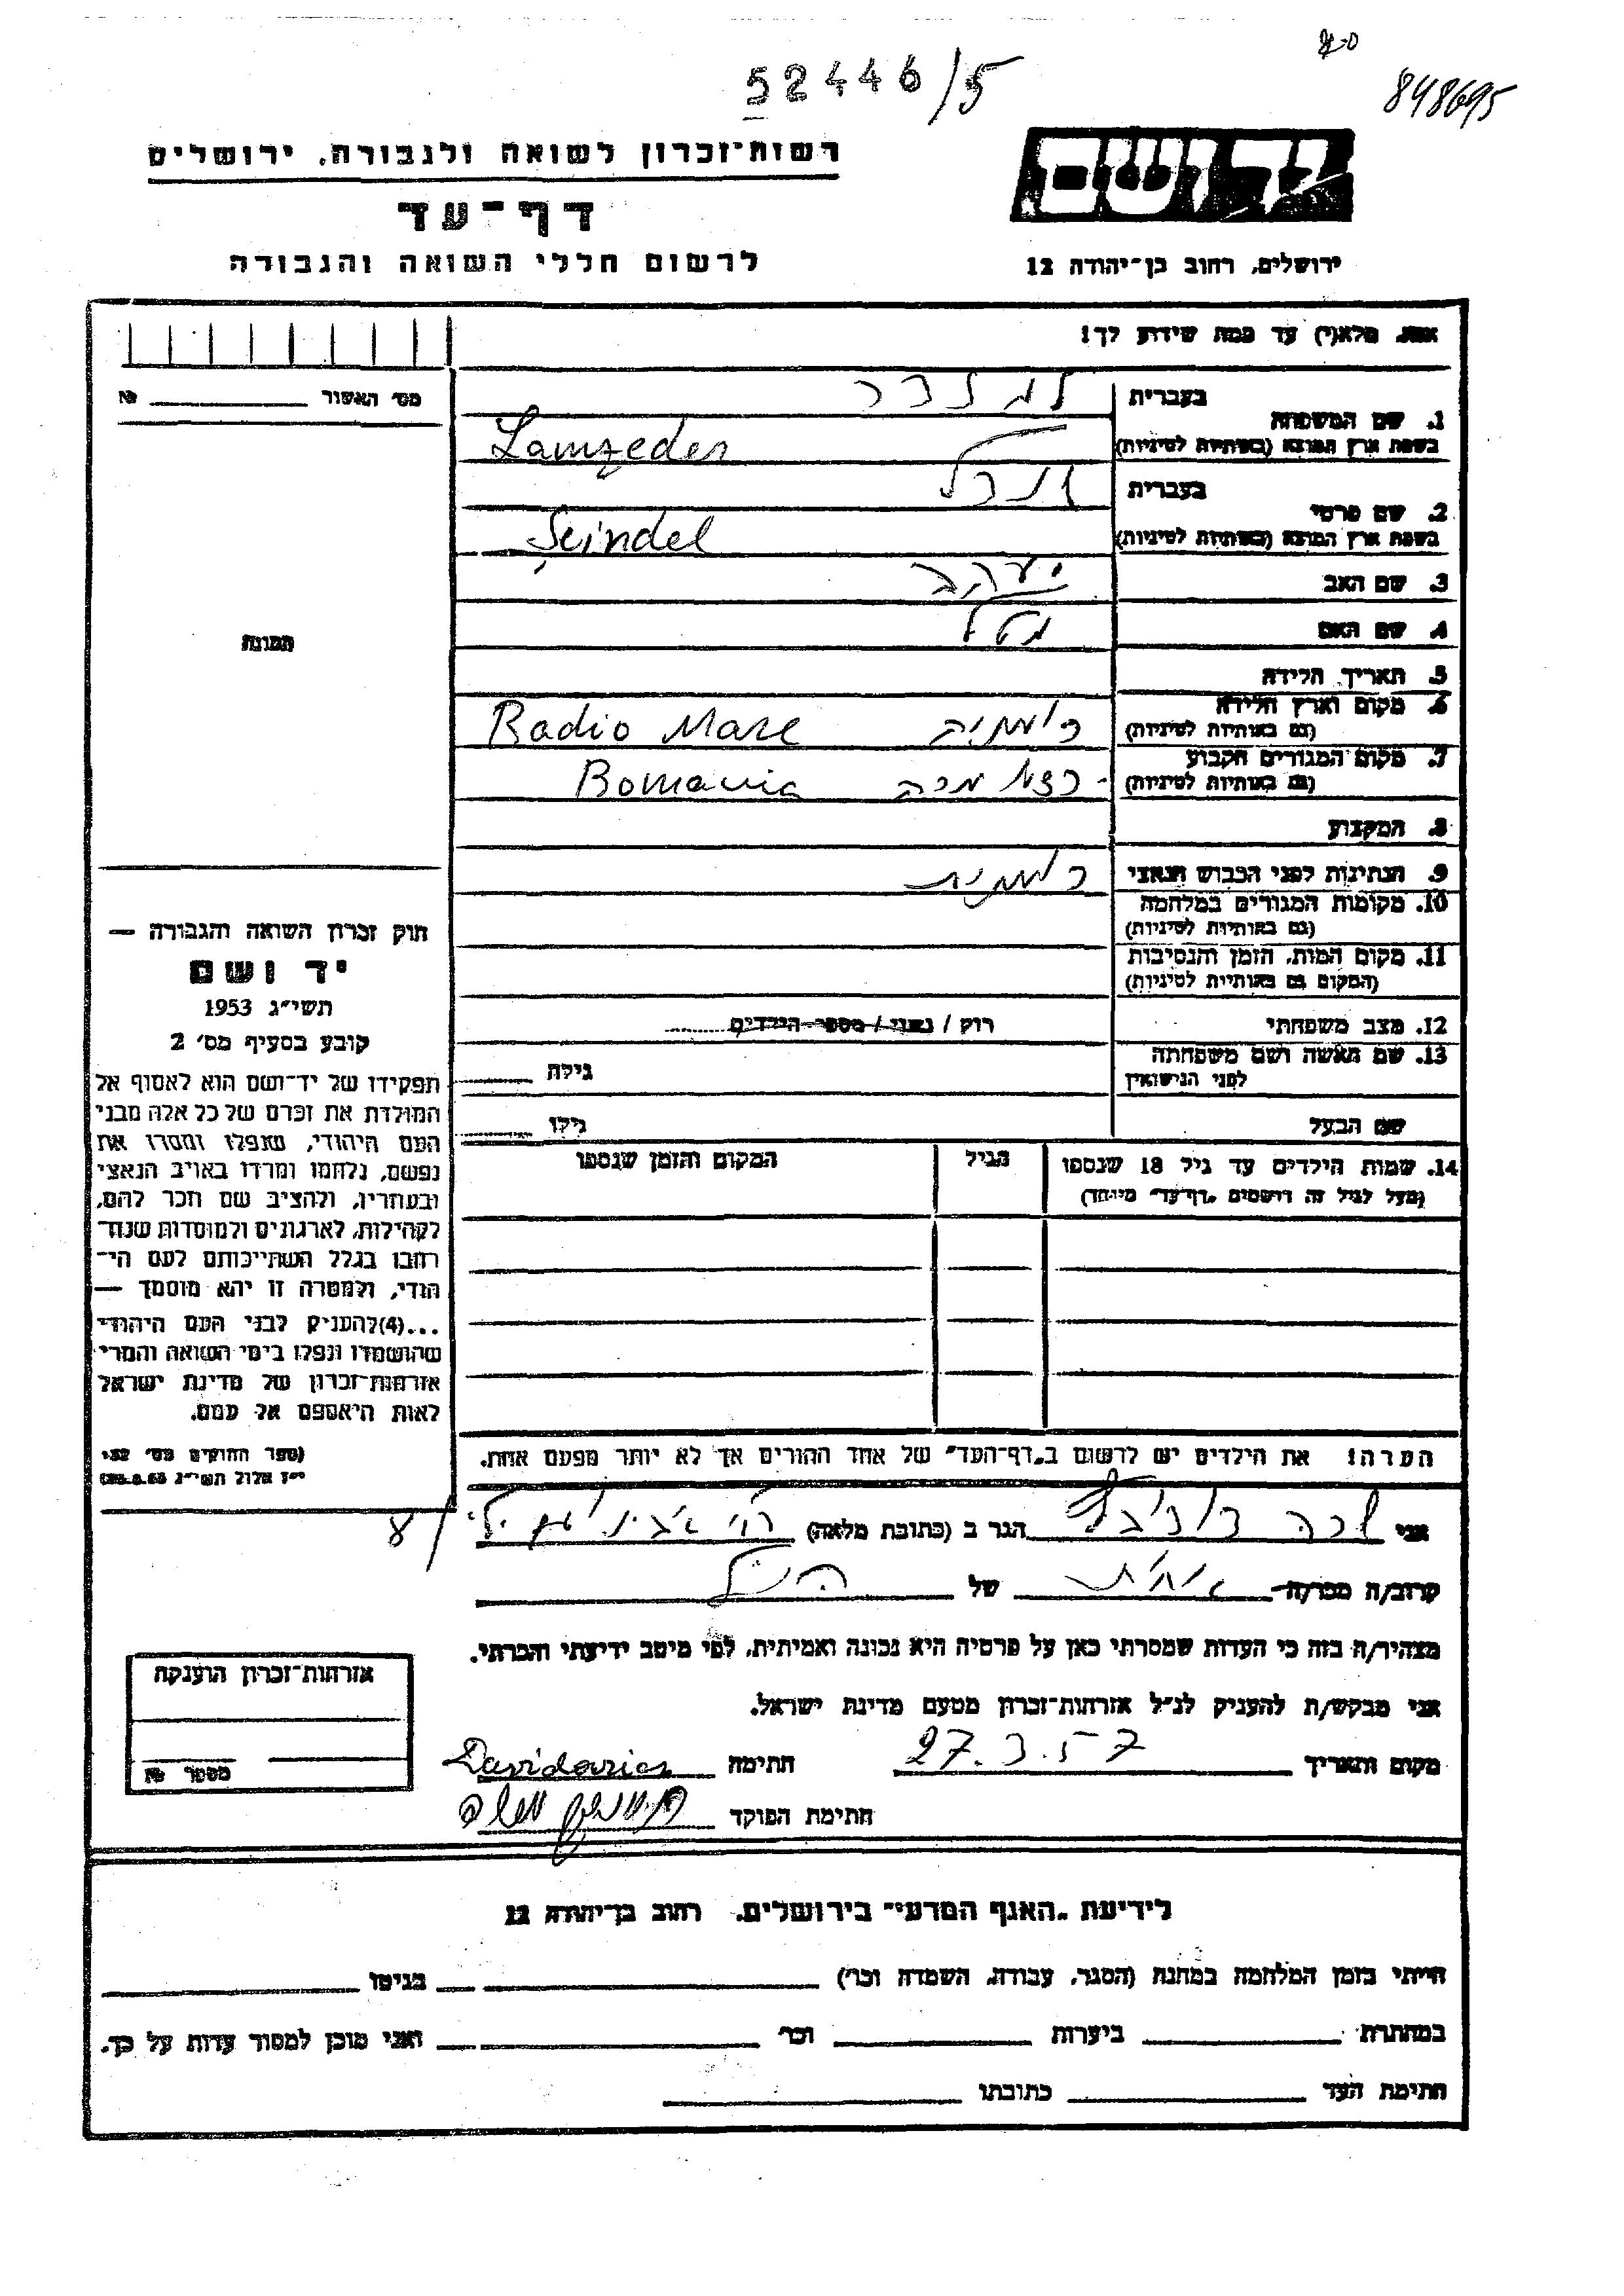 52446/5
848695
רשות־זכרון לשואה ולגבורה, ירושלים
דף־עד
לרשום חללי השואה והגבורה
יד ושם
ירושלים, רחוב בן־יהודה 12
אנא, מלא(י) עד כמה שידוע לך!
מס׳ האשור № 
1. שם המשפחה בעברית
בשפת ארץ המוצא (באותיות לטיניות) Lamzeder
2. שם פרטי בעברית
בשפת ארץ המוצא (באותיות לטיניות) Seindel
3. שם האב יעקב
4. שם האם
5. תאריך הלידה
6. מקום וארץ הלידה רומניה Radio Mare
(גם באותיות לטיניות)
7. מקום המגורים הקבוע
(גם באותיות לטיניות) Romania
8. המקצוע
9. הנתינות לפני הכבוש הנאצי רומנית
10. מקומות המגורים במלחמה
(גם באותיות לטיניות)
11. מקום המות, הזמן והנסיבות
(המקום גם באותיות לטיניות)
12. מצב משפחתי רוק / נשוי / מספר הילדים
13. שם האשה ושם משפחתה
לפני הנישואין גילה
שם הבעל גילו
14. שמות הילדים עד גיל 18 שנספו הגיל המקום והזמן שנספו
(מעל לגיל זה רושמים „דף־עד״ מיוחד)
הערה: את הילדים יש לרשום ב„דף־העד״ של אחד ההורים אך לא יותר מפעם אחת.
תמונה
חוק זכרון השואה והגבורה —
יד ושם
תשי״ג 1953
קובע בסעיף מס׳ 2
תפקידו של יד־ושם הוא לאסוף אל
המולדת את זכרם של כל אלה מבני
העם היהודי, שנפלו ומסרו את
נפשם, נלחמו ומרדו באויב הנאצי
ובעוזריו, ולהציב שם וזכר להם,
לקהילות, לארגונים ולמוסדות שנח־
רבו בגלל השתייכותם לעם הי־
הודי, ולמטרה זו יהא מוסמך —
...(4) להעניק לבני העם היהודי
שהושמדו ונפלו בימי השואה והמרי
אזרחות־זכרון של מדינת ישראל
לאות היאספם אל עמם.
(ספר החוקים מס׳ 132
י״ז אלול תשי״ג 28.8.53)
אני שרה הגר ב (כתובת מלאה)
קרוב/ה מכר/ה אחות של הנ״ל
מצהיר/ה בזה כי העדות שמסרתי כאן על פרטיה היא נכונה ואמיתית, לפי מיטב ידיעתי והכרתי.
אני מבקש/ת להעניק לנ״ל אזרחות־זכרון מטעם מדינת ישראל.
מקום ותאריך 27.3.57 חתימה
חתימת הפוקד
אזרחות־זכרון הוענקה
מספר №
לידיעת „האגף המדעי״ בירושלים, רחוב בן־יהודה 12
הייתי בזמן המלחמה במחנה (הסגר, עבודה, השמדה וכו׳) בגיטו
במחתרת ביערות וכו׳ ואני מוכן למסור עדות על כך.
חתימת העד כתובתו